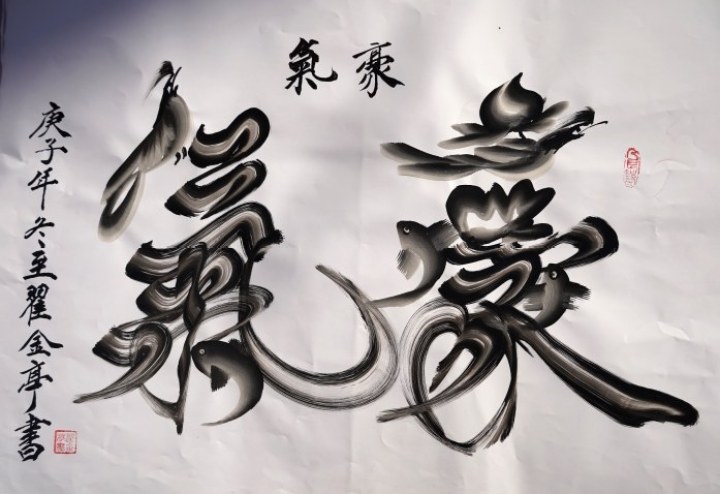 豪氣
豪氣
庚子年冬至翟金亭書